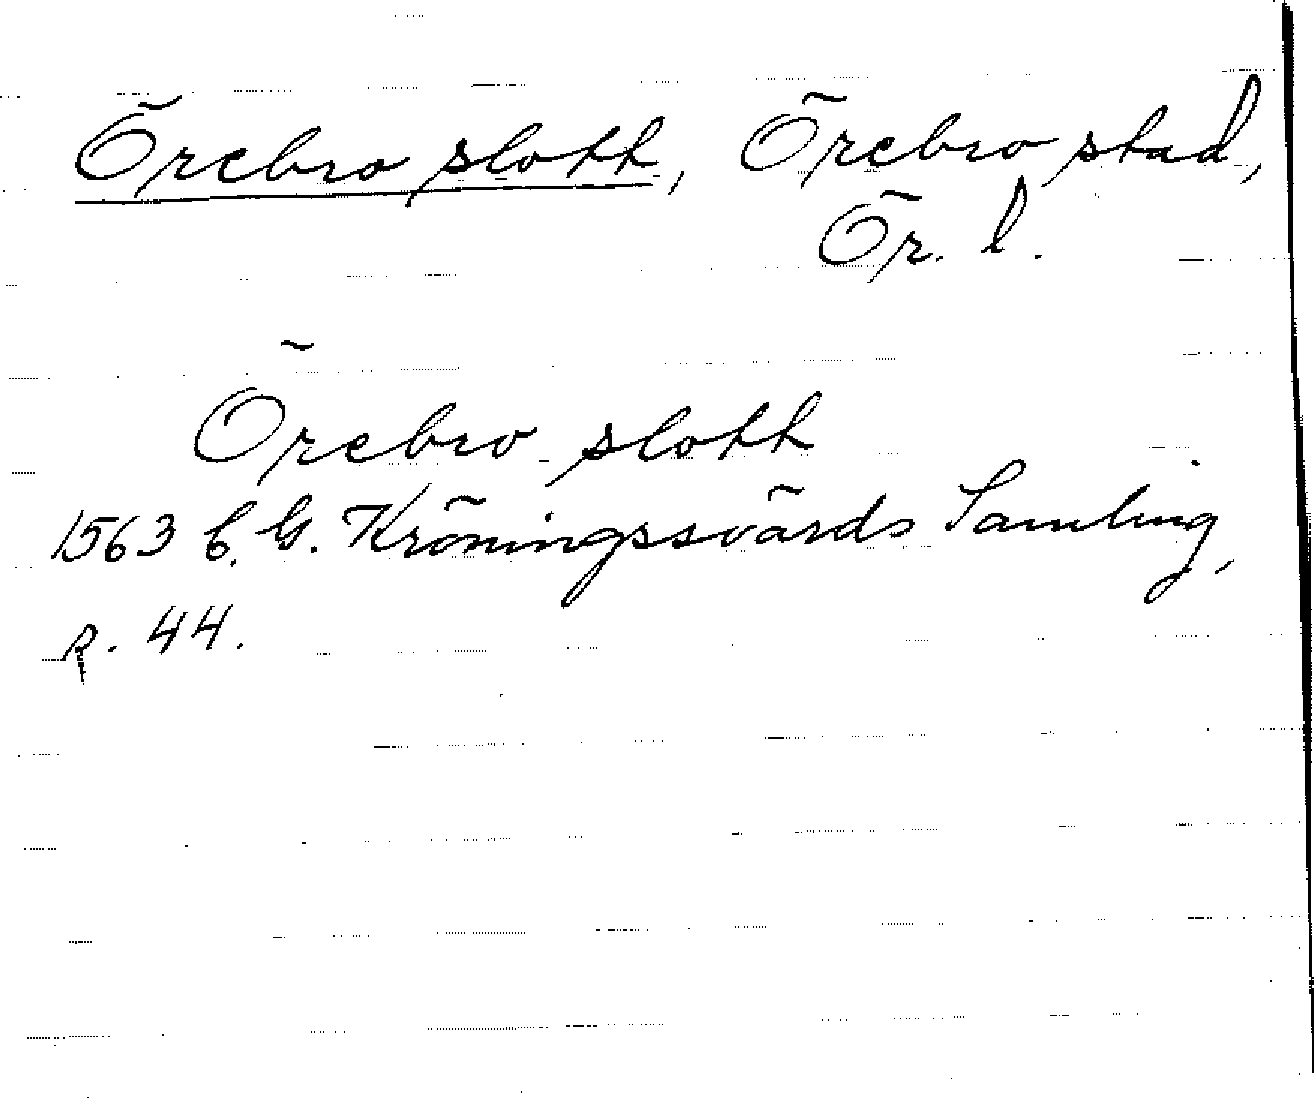 Örebro slott, Örebro stad,
Ör. l.
Örebro slott
1563 C. G. Kröningssvärds Samling,
R. 44.